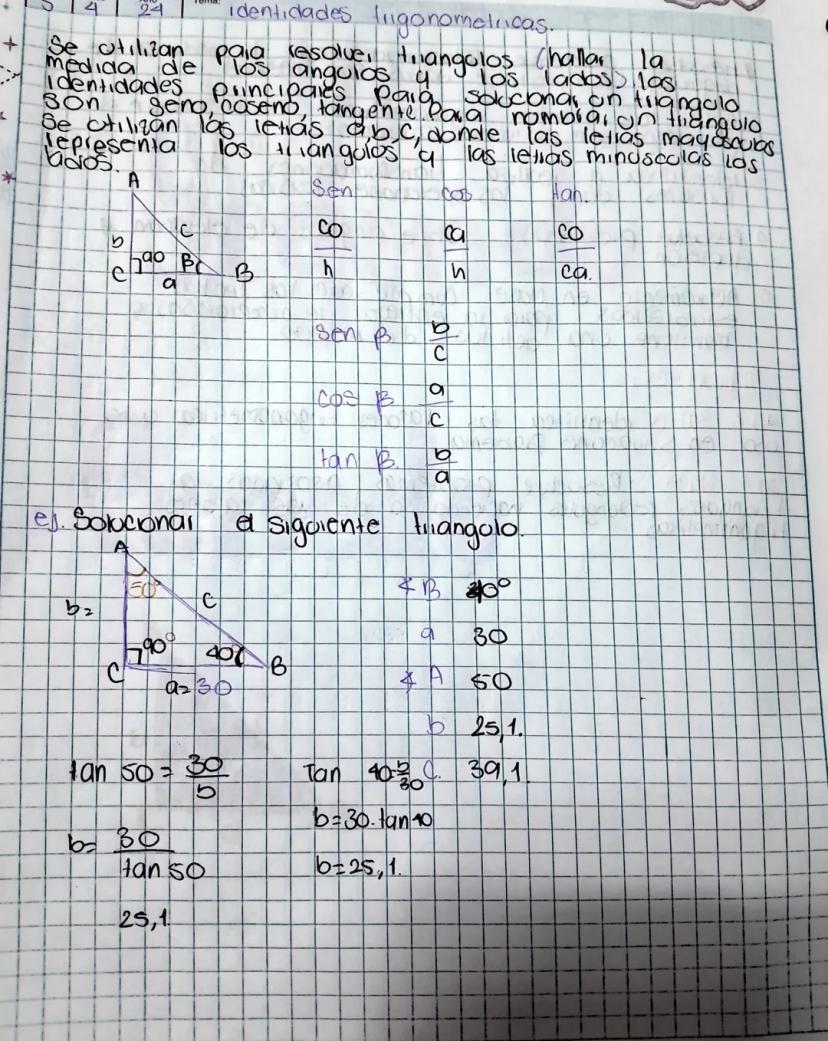 5 4 24 identidades trigonometricas.
Se utilizan para resolver triangulos (hallar la
medida de los angulos y los lados) las
identidades principales para solucionar un triangulo
son seno, coseno, tangente. Para nombrar un triangulo
Se utilizan las letras a,b,c, donde las letras mayusculas
representa los triangulos y las letras minusculas los
lados.
A sen cos tan.
b c co/h ca/h co/ca.
C 90 β B
a
sen β b/c
cos β a/c
tan β. b/a
ej. Solucionar el siguiente triangulo.
A
50°
b= c ∡ B 40°
90° 40 a 30
C B ∡ A 50
a=30
b 25,1.
tan 50 = 30/b Tan 40=b/30 C. 39,1
b=30.tan40
b= 30/tan 50 b=25,1.
25,1